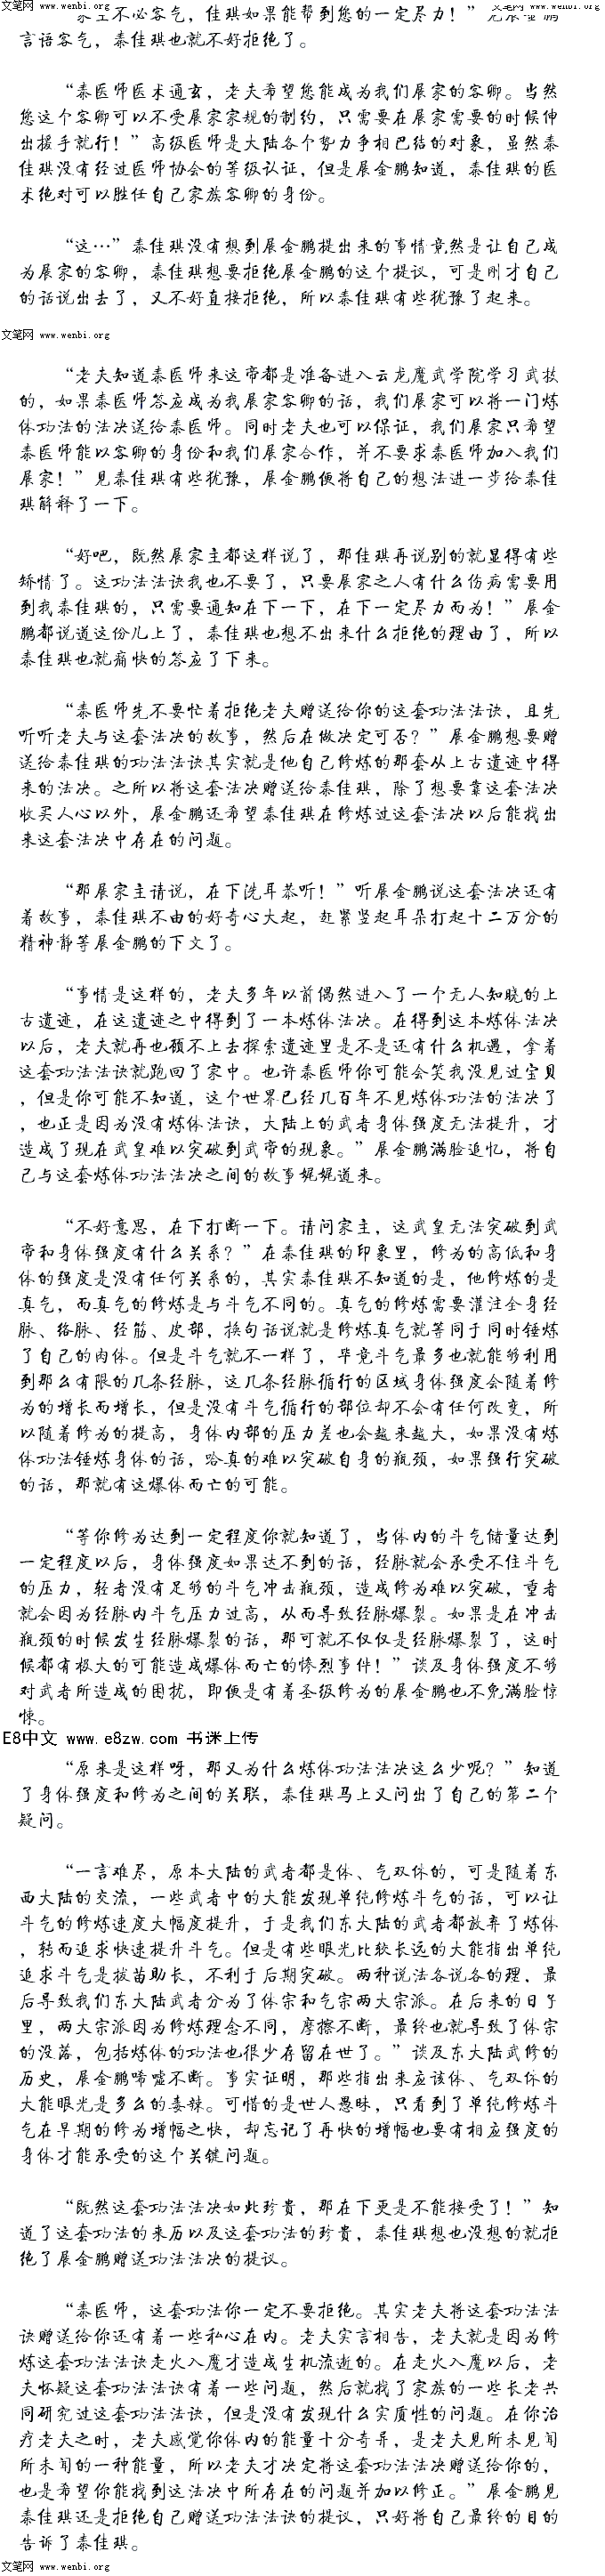 文笔网 www.wenbi.org 文笔网 www.wenbi.org
家主不必客气，佳琪如果能帮到您的一定尽力！”见展金鹏
言语客气，秦佳琪也就不好拒绝了。
“秦医师医术通玄，老夫希望您能成为我们展家的客卿。当然
您这个客卿可以不受展家家规的制约，只需要在展家需要的时候伸
出援手就行！”高级医师是大陆各个势力争相巴结的对象，虽然秦
佳琪没有经过医师协会的等级认证，但是展金鹏知道，秦佳琪的医
术绝对可以胜任自己家族客卿的身份。
“这…”秦佳琪没有想到展金鹏提出来的事情竟然是让自己成
为展家的客卿，秦佳琪想要拒绝展金鹏的这个提议，可是刚才自己
的话说出去了，又不好直接拒绝，所以秦佳琪有些犹豫了起来。
文笔网 www.wenbi.org
“老夫知道秦医师来这帝都是准备进入云龙魔武学院学习武技
的，如果秦医师答应成为我展家客卿的话，我们展家可以将一门炼
体功法的法决送给秦医师。同时老夫也可以保证，我们展家只希望
秦医师能以客卿的身份和我们展家合作，并不要求秦医师加入我们
展家！”见秦佳琪有些犹豫，展金鹏便将自己的想法进一步给秦佳
琪解释了一下。
“好吧，既然展家主都这样说了，那佳琪再说别的就显得有些
矫情了。这功法法诀我也不要了，只要展家之人有什么伤病需要用
到我秦佳琪的，只需要通知在下一下，在下一定尽力而为！”展金
鹏都说道这份儿上了，秦佳琪也想不出来什么拒绝的理由了，所以
秦佳琪也就痛快的答应了下来。
“秦医师先不要忙着拒绝老夫赠送给你的这套功法法诀，且先
听听老夫与这套法决的故事，然后在做决定可否？”展金鹏想要赠
送给秦佳琪的功法法诀其实就是他自己修炼的那套从上古遗迹中得
来的法决。之所以将这套法决赠送给秦佳琪，除了想要靠这套法决
收买人心以外，展金鹏还希望秦佳琪在修炼过这套法决以后能找出
来这套法决中存在的问题。
“那展家主请说，在下洗耳恭听！”听展金鹏说这套法决还有
着故事，秦佳琪不由的好奇心大起，赶紧竖起耳朵打起十二万分的
精神静等展金鹏的下文了。
“事情是这样的，老夫多年以前偶然进入了一个无人知晓的上
古遗迹，在这遗迹之中得到了一本炼体法决。在得到这本炼体法决
以后，老夫就再也顾不上去探索遗迹里是不是还有什么机遇，拿着
这套功法法诀就跑回了家中。也许秦医师你可能会笑我没见过宝贝
，但是你可能不知道，这个世界已经几百年不见炼体功法的法决了
，也正是因为没有炼体法诀，大陆上的武者身体强度无法提升，才
造成了现在武皇难以突破到武帝的现象。”展金鹏满脸追忆，将自
己与这套炼体功法法决之间的故事娓娓道来。
“不好意思，在下打断一下。请问家主，这武皇无法突破到武
帝和身体强度有什么关系？”在秦佳琪的印象里，修为的高低和身
体的强度是没有任何关系的，其实秦佳琪不知道的是，他修炼的是
真气，而真气的修炼是与斗气不同的。真气的修炼需要灌注全身经
脉、络脉、经筋、皮部，换句话说就是修炼真气就等同于同时锤炼
了自己的肉体。但是斗气就不一样了，毕竟斗气最多也就能够利用
到那么有限的几条经脉，这几条经脉循行的区域身体强度会随着修
为的增长而增长，但是没有斗气循行的部位却不会有任何改变，所
以随着修为的提高，身体内部的压力差也会越来越大，如果没有炼
体功法锤炼身体的话，哈真的难以突破自身的瓶颈，如果强行突破
的话，那就有这爆体而亡的可能。
“等你修为达到一定程度你就知道了，当体内的斗气储量达到
一定程度以后，身体强度如果达不到的话，经脉就会承受不住斗气
的压力，轻者没有足够的斗气冲击瓶颈，造成修为难以突破，重者
就会因为经脉内斗气压力过高，从而导致经脉爆裂。如果是在冲击
瓶颈的时候发生经脉爆裂的话，那可就不仅仅是经脉爆裂了，这时
候都有极大的可能造成爆体而亡的惨烈事件！”谈及身体强度不够
对武者所造成的困扰，即便是有着圣级修为的展金鹏也不免满脸惊
悚。
E8中文 www.e8zw.com 书迷上传
“原来是这样呀，那又为什么炼体功法法决这么少呢？”知道
了身体强度和修为之间的关联，秦佳琪马上又问出了自己的第二个
疑问。
“一言难尽，原本大陆的武者都是体、气双休的，可是随着东
西大陆的交流，一些武者中的大能发现单纯修炼斗气的话，可以让
斗气的修炼速度大幅度提升，于是我们东大陆的武者都放弃了炼体
，转而追求快速提升斗气。但是有些眼光比较长远的大能指出单纯
追求斗气是拔苗助长，不利于后期突破。两种说法各说各的理，最
后导致我们东大陆武者分为了体宗和气宗两大宗派。在后来的日子
里，两大宗派因为修炼理念不同，摩擦不断，最终也就导致了体宗
的没落，包括炼体的功法也很少存留在世了。”谈及东大陆武修的
历史，展金鹏唏嘘不断。事实证明，那些指出来应该体、气双休的
大能眼光是多么的毒辣。可惜的是世人愚昧，只看到了单纯修炼斗
气在早期的修为增幅之快，却忘记了再快的增幅也要有相应强度的
身体才能承受的这个关键问题。
“既然这套功法法决如此珍贵，那在下更是不能接受了！”知
道了这套功法的来历以及这套功法的珍贵，秦佳琪想也没想的就拒
绝了展金鹏赠送功法法决的提议。
“秦医师，这套功法你一定不要拒绝。其实老夫将这套功法法
诀赠送给你还有着一些私心在内。老夫实言相告，老夫就是因为修
炼这套功法法诀走火入魔才造成生机流逝的。在走火入魔以后，老
夫怀疑这套功法法诀有着一些问题，然后就找了家族的一些长老共
同研究过这套功法法诀，但是没有发现什么实质性的问题。在你治
疗老夫之时，老夫感觉你体内的能量十分奇异，是老夫见所未见闻
所未闻的一种能量，所以老夫才决定将这套功法法决赠送给你的，
也是希望你能找到这法决中所存在的问题并加以修正。”展金鹏见
秦佳琪还是拒绝自己赠送功法法诀的提议，只好将自己最终的目的
告诉了秦佳琪。
文笔网 www.wenbi.org